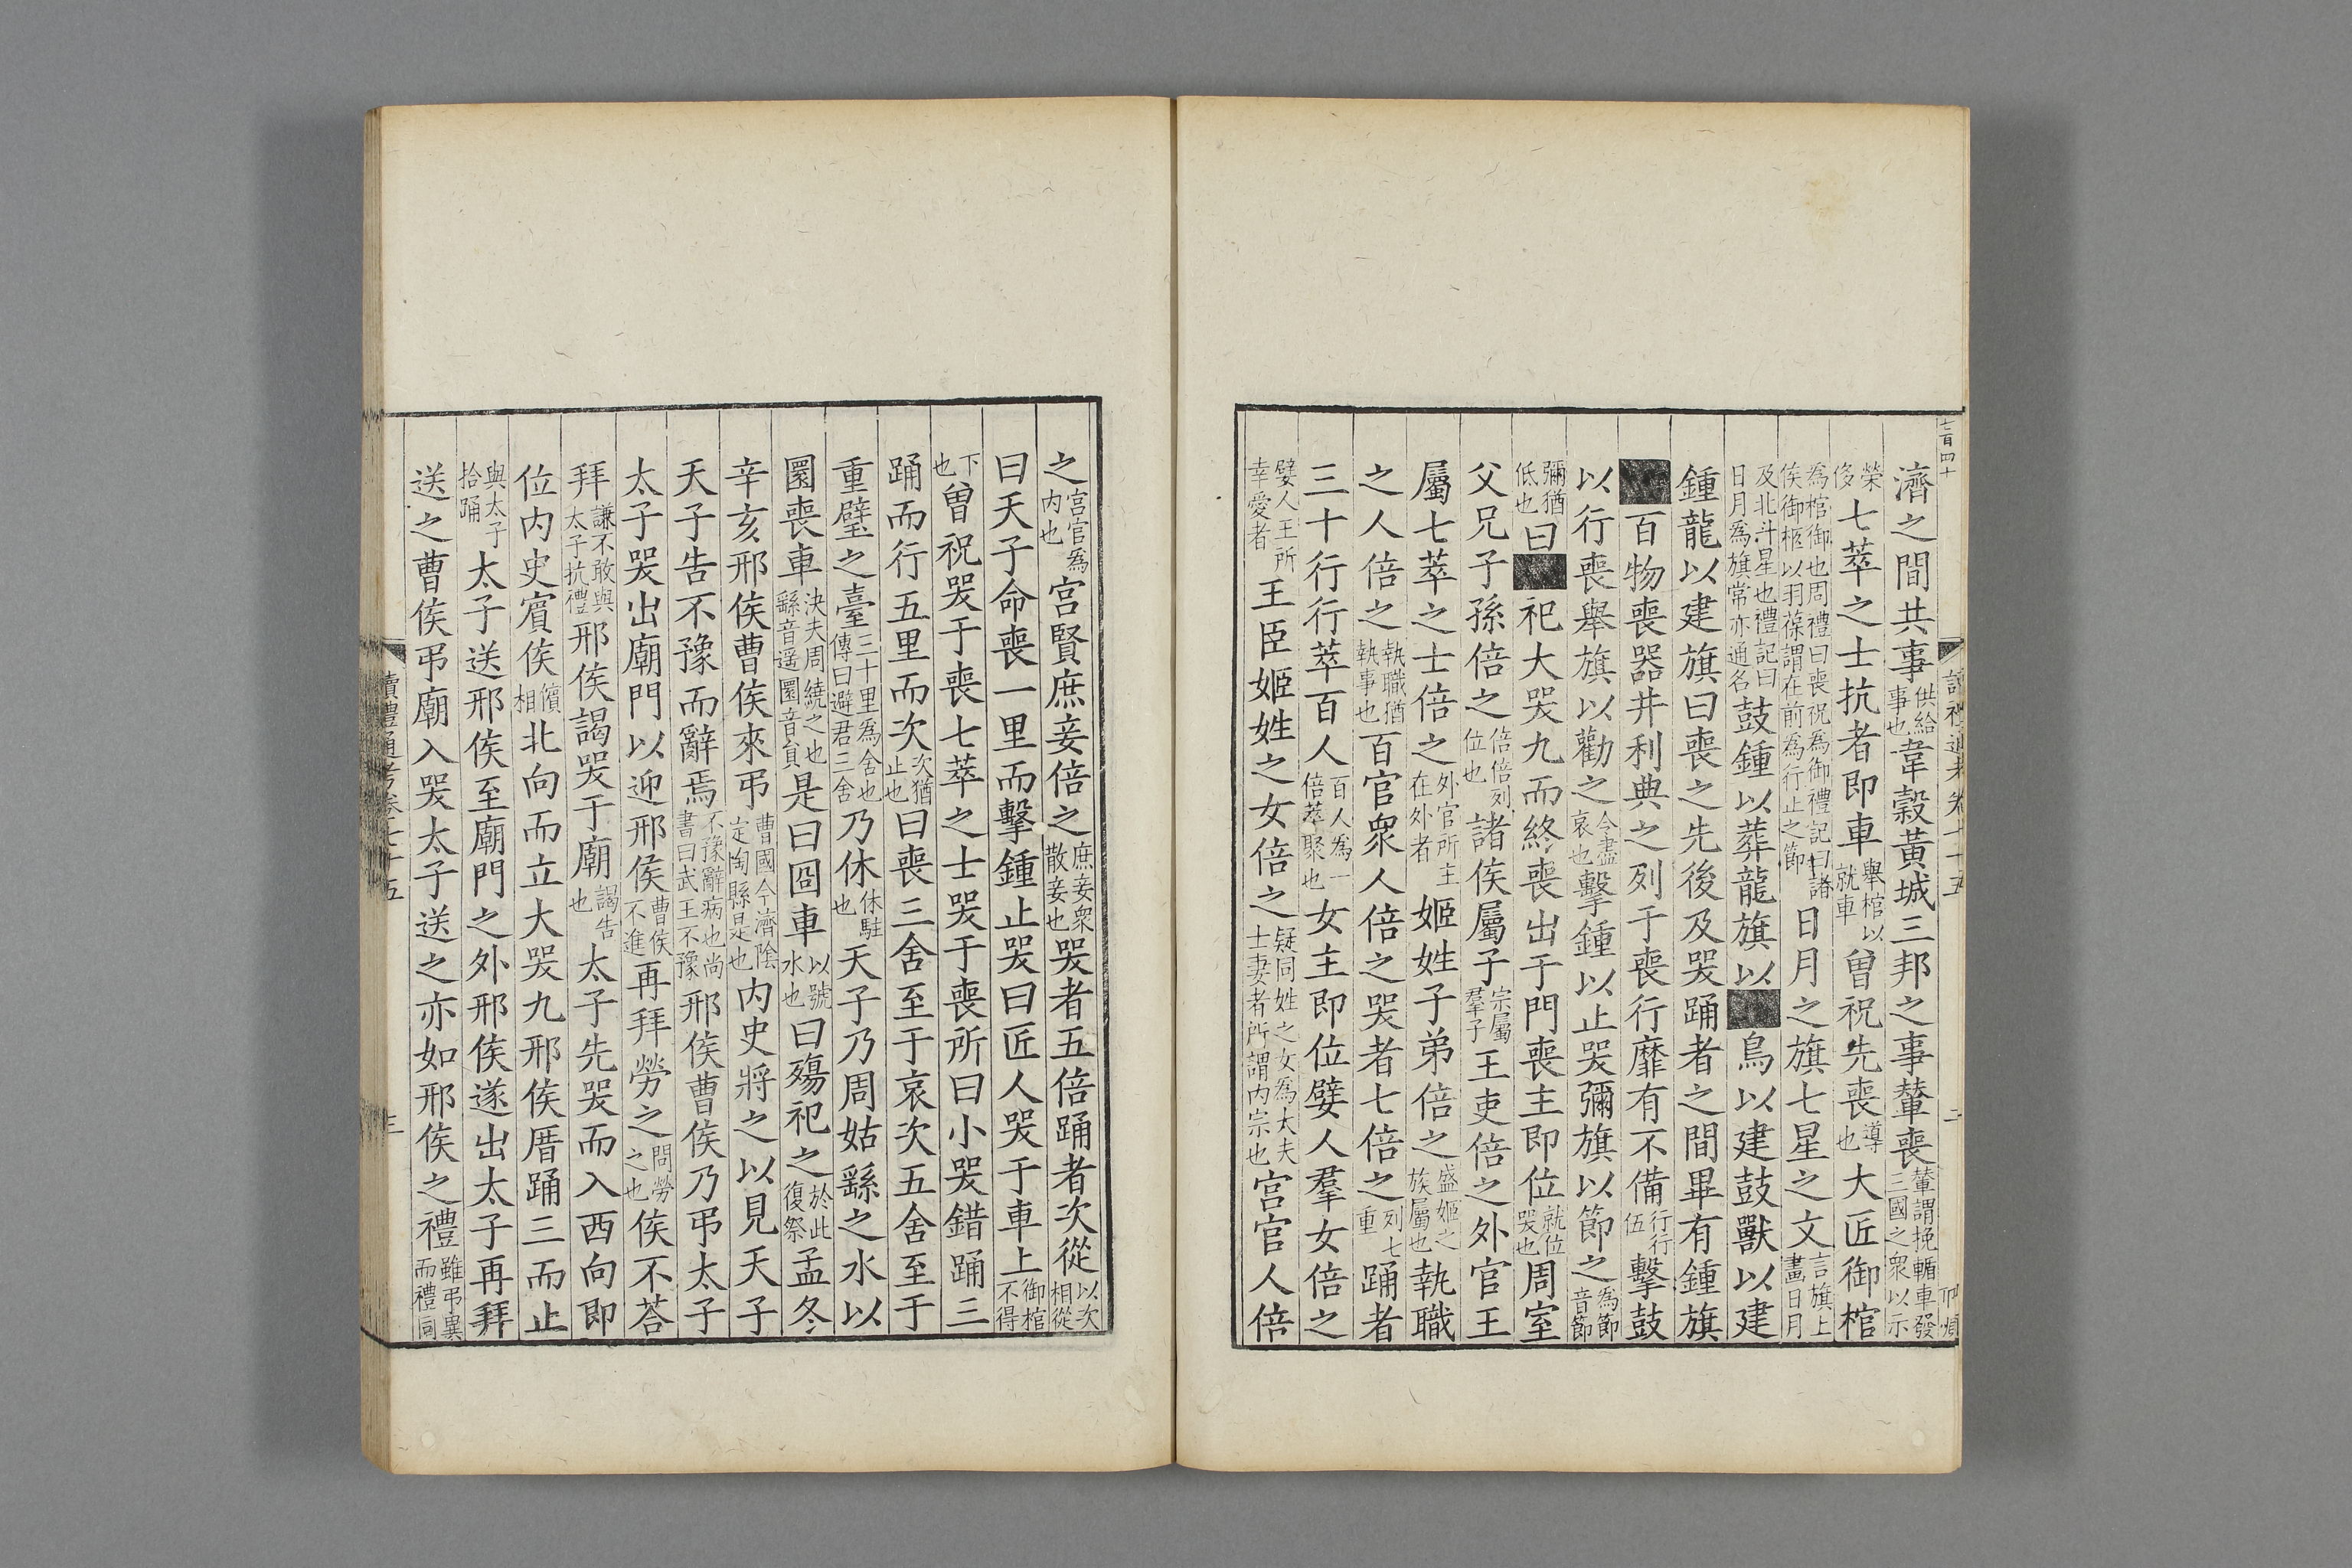 濟之間共事供給事也韋穀黃城三邦之事輦喪輦謂挽輴車發三國之衆以示
榮侈七萃之士抗者即車舉棺以就車曾祝先喪導也大匠御棺
為棺御也周禮曰喪祝為御禮記曰諸侯御柩以羽葆謂在前為行止之節日月之旗七星之文言旗上畫日月
及北斗星也禮記曰日月為旗常亦通名鼓鍾以葬龍旗以■鳥以建鼓獸以建
鍾龍以建旗曰喪之先後及哭踊者之間畢有鍾旗
■百物喪器井利典之列于喪行靡有不備行行伍擊鼓
以行喪舉旗以勸之令盡哀也擊鍾以止哭彌旗以節之為節音節
彌猶低也曰■祀大哭九而終喪出于門喪主即位就位哭也周室
父兄子孫倍之倍倍列位也諸侯屬子宗屬羣子王吏倍之外官王
屬七萃之士倍之外官所主在外者姬姓子弟倍之盛姬之族屬也執職
之人倍之執職猶執事也百官衆人倍之哭者七倍之列七重踊者
三十行行萃百人百人為一倍萃聚也女主即位嬖人羣女倍之
嬖人王所幸愛者王臣姬姓之女倍之疑同姓之女為大夫士妻者所謂内宗也宮官人倍
之宮官為内也宮賢庶妾倍之庶妾衆散妾也哭者五倍踊者次從以次相從
曰天子命喪一里而擊鍾止哭曰匠人哭于車上御棺不得
下也曾祝哭于喪七萃之士哭于喪所曰小哭錯踊三
踊而行五里而次次猶止也曰喪三舍至于哀次五舍至于
重璧之臺三十里為舍也傳曰避君三舍乃休休駐也天子乃周姑繇之水以
圜喪車決夫周繞之也繇音遥圜音負是曰囧車以號水也曰殤祀之於此復祭孟冬
辛亥邢侯曹侯來弔曹國今濟陰定陶縣是也内史將之以見天子
天子告不豫而辭焉不豫辭病也尚書曰武王不豫邢侯曹侯乃弔太子
太子哭出廟門以迎邢侯曹侯不進再拜勞之問勞之也侯不荅
拜謙不敢與太子抗禮邢侯謁哭于廟謁告也太子先哭而入西向即
位内史賔侯儐相北向而立大哭九邢侯厝踊三而止
與太子拾踊太子送邢侯至廟門之外邢侯遂出太子再拜
送之曹侯弔廟入哭太子送之亦如邢侯之禮雖弔異而禮同